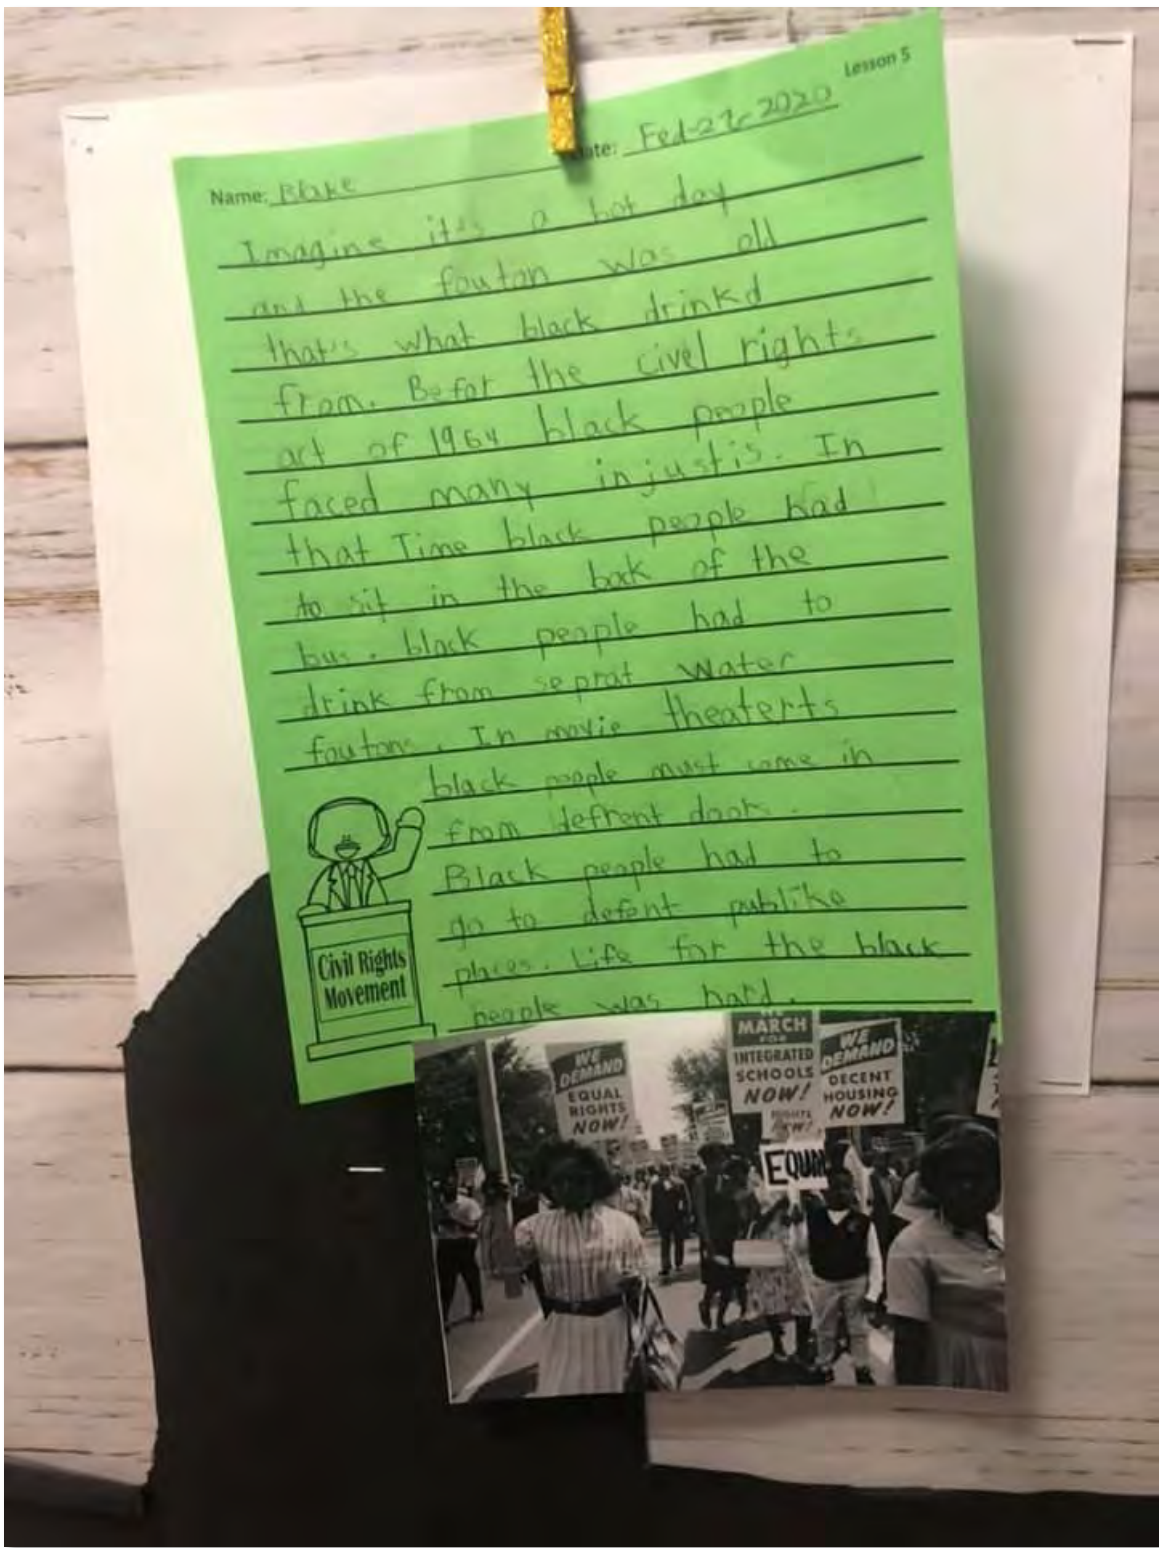 Lesson 5
Name: Blake Date: Fed-27-2020
Imagine it's a hot day
and the fouton was old
that's what black drinkd
from. Befor the civel rights
act of 1964 black people
faced many injustis. In
that Time black people had
to sit in the back of the
bus. black people had to
drink from seprat water
foutons. In movie theaterts
black people must come in
from defrent doors.
Black people had to
go to defent publike
places. Life for the black
people was hard.
Civil Rights
Movement
WE
DEMAND
EQUAL
RIGHTS
NOW!
MARCH
FOR
INTEGRATED
SCHOOLS
NOW!
WE
DEMAND
DECENT
HOUSING
NOW!
RIGHTS
NOW!